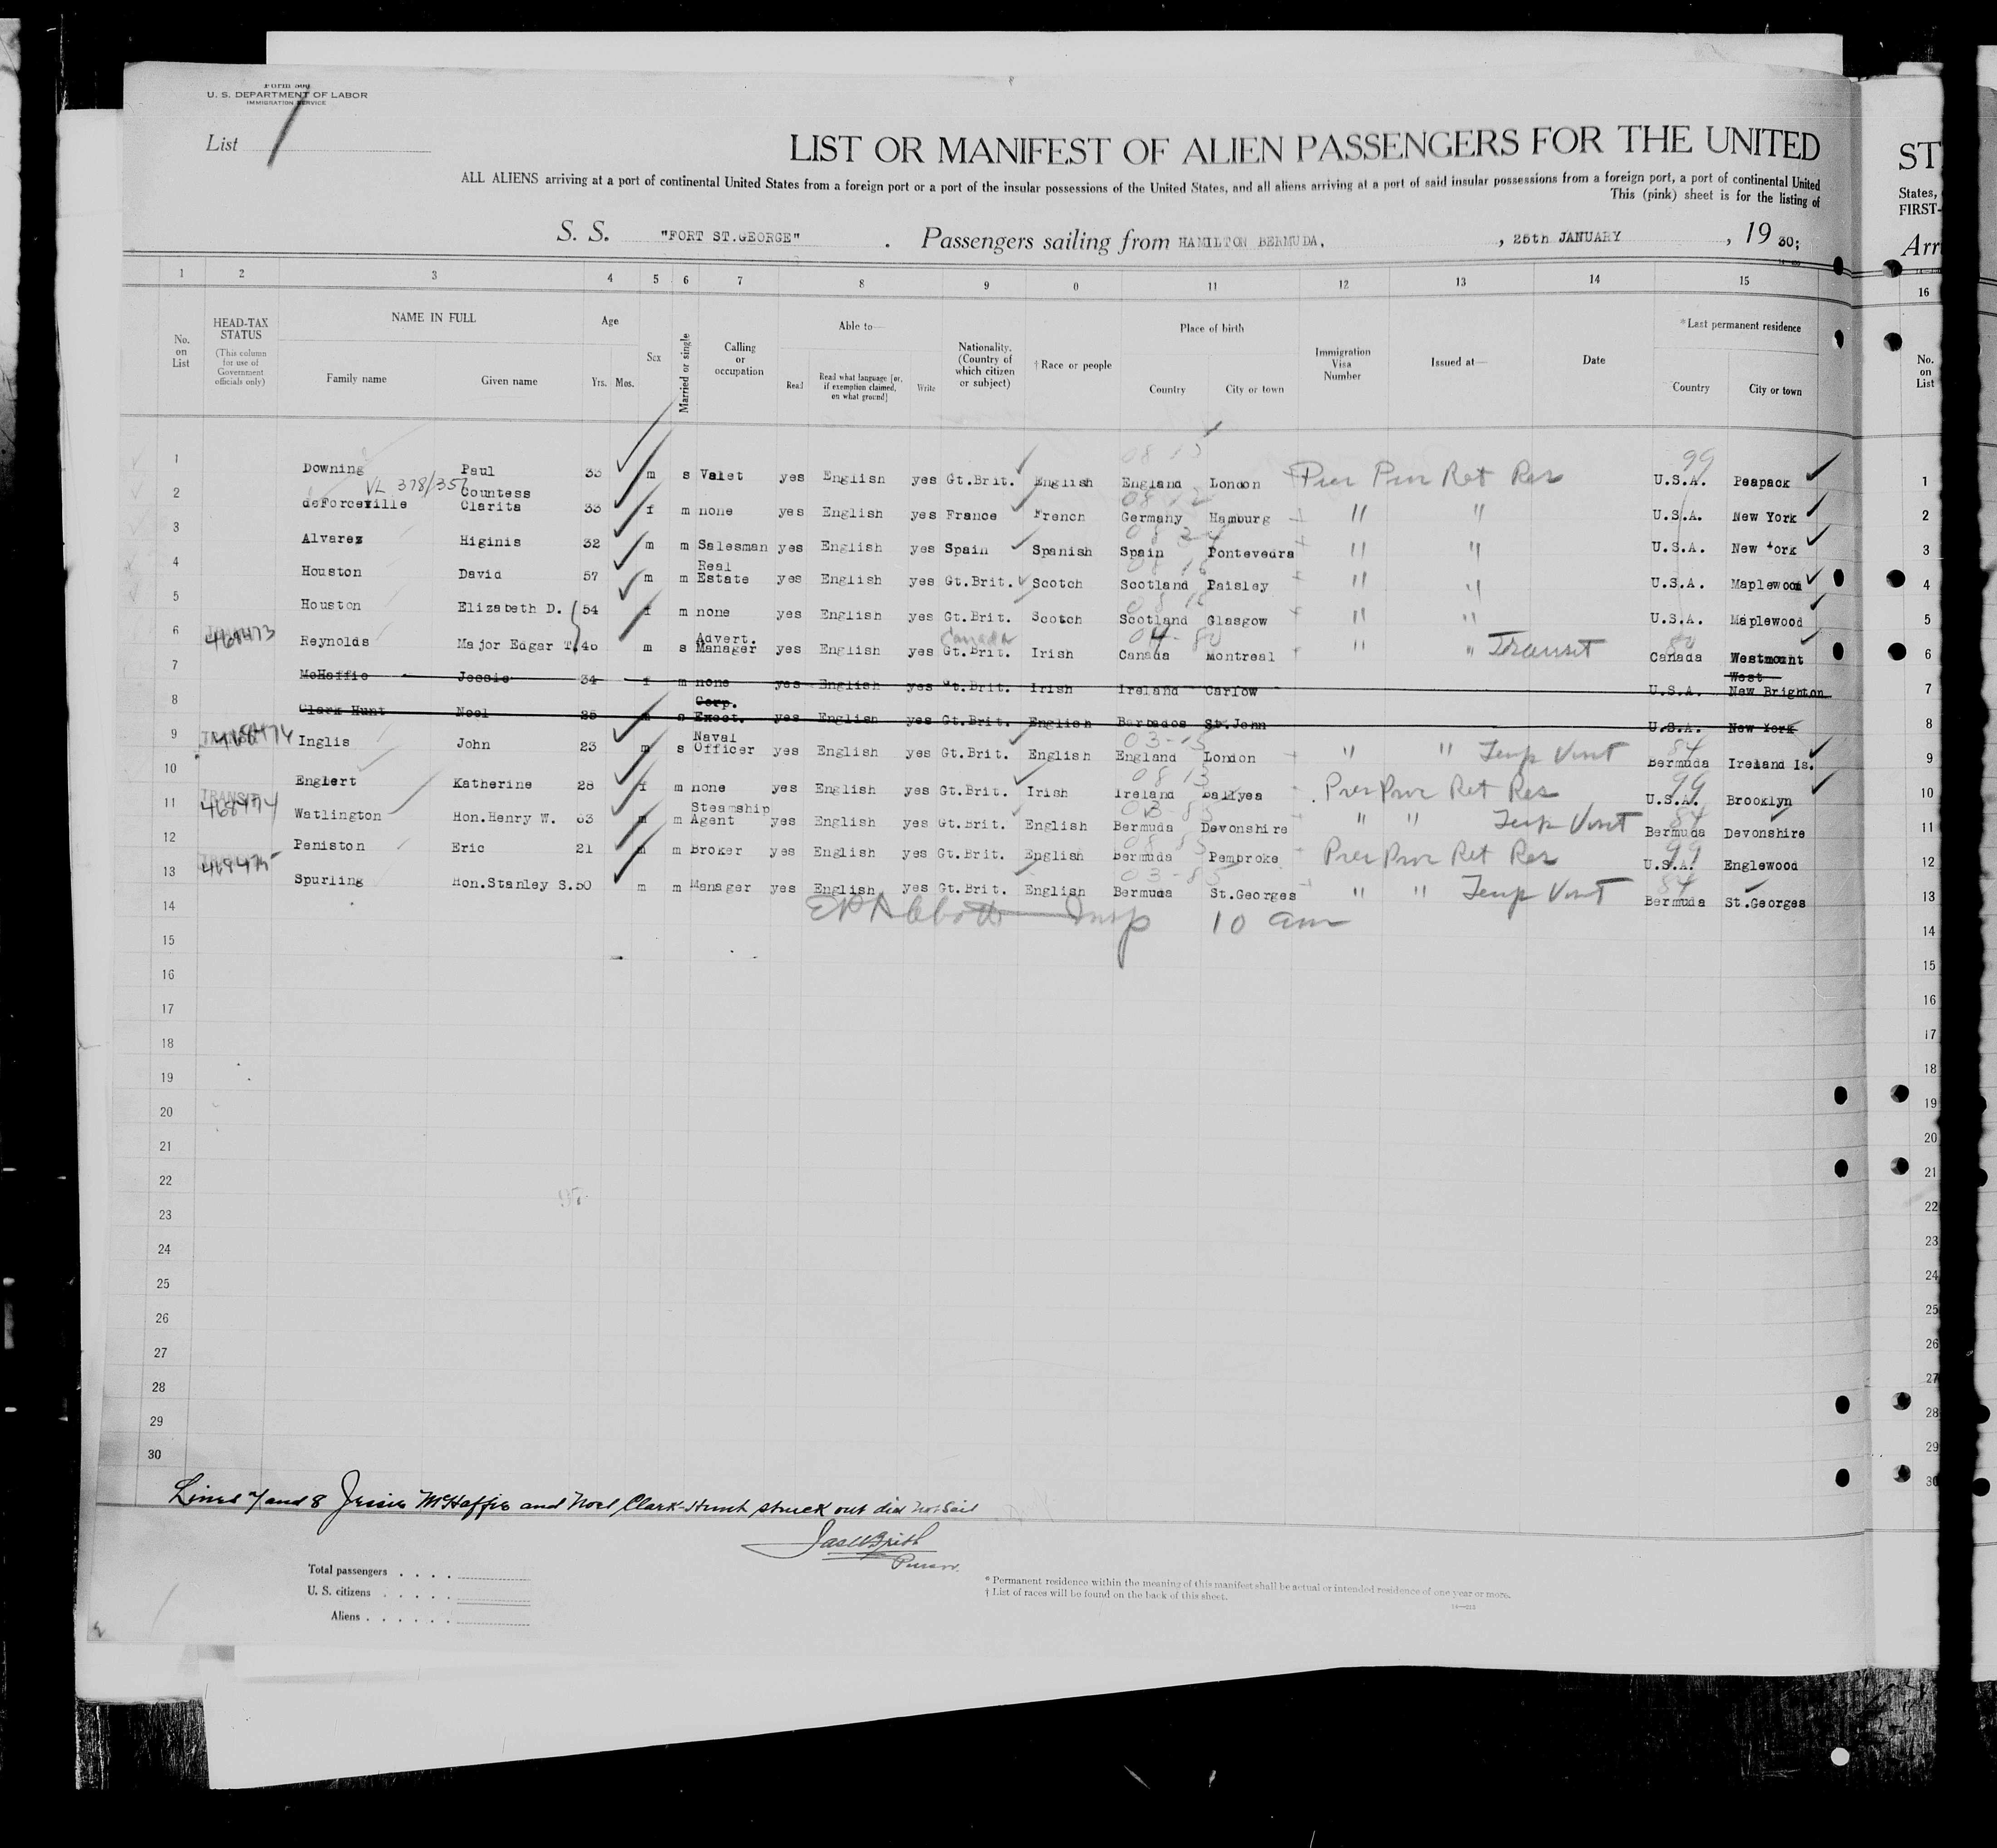 Form 500
U. S. DEPARTMENT OF LABOR
IMMIGRATION SERVICE
List 1
LIST OR MANIFEST OF ALIEN PASSENGERS FOR THE UNITED ST
ALL ALIENS arriving at a port of continental United States from a foreign port or a port of the insular possessions of the United States, and all aliens arriving at a port of said insular possessions from a foreign port, a port of continental United States,
This (pink) sheet is for the listing of FIRST-
S. S. "FORT ST.GEORGE" . Passengers sailing from HAMILTON BERMUDA. , 25th JANUARY , 19 30; Arri
1 2 3 4 5 6 7 8 9 0 11 12 13 14 15 16
No. on List HEAD-TAX STATUS (This column for use of Government officials only) NAME IN FULL Family name Given name Age Yrs. Mos. Sex Married or single Calling or occupation Able to— Read Read what language [or, if exemption claimed, on what ground] Write Nationality. (Country of which citizen or subject) † Race or people Place of birth Country City or town Immigration Visa Number Issued at— Date *Last permanent residence Country City or town No. on List
1 Downing Paul 33 m s Valet yes English yes Gt.Brit. English 08 13 England London Prer Ret Res 99 U.S.A. Peapack 1
VL 378/357
2 deForceville Countess Clarita 33 f m none yes English yes France French 08 12 Germany Hamburg " " U.S.A. New York 2
3 Alvarez Higinis 32 m m Salesman yes English yes Spain Spanish 08 24 Spain Pontevedra " " U.S.A. New York 3
4 Houston David 57 m m Real Estate yes English yes Gt.Brit. Scotch 08 16 Scotland Paisley " " U.S.A. Maplewood 4
5 Houston Elizabeth D. 54 f m none yes English yes Gt.Brit. Scotch 08 16 Scotland Glasgow " " U.S.A. Maplewood 5
6 468473 Reynolds Major Edgar T. 46 m s Advert. Manager yes English yes Canada Gt.Brit. Irish 04-80 Canada Montreal " " Transit 80 Canada Westmount 6
7 McHaffie Jessie 34 f m none yes English yes Gt.Brit. Irish Ireland Carlow U.S.A. West New Brighton 7
8 Clark Hunt Noel 25 m s Corp. Exect. yes English yes Gt.Brit. English Barbados St.John U.S.A. New York 8
9 468474 Inglis John 23 m s Naval Officer yes English yes Gt.Brit. English 03-13 England London " " Temp Visit 84 Bermuda Ireland Is. 9
10 Englert Katherine 28 f m none yes English yes Gt.Brit. Irish 08 13 Ireland Ballyea Prer Ret Res 99 U.S.A. Brooklyn 10
11 TRANSIT 468474 Watlington Hon.Henry W. 63 m m Steamship Agent yes English yes Gt.Brit. English 03-85 Bermuda Devonshire " " Temp Visit 84 Bermuda Devonshire 11
12 Peniston Eric 21 m m Broker yes English yes Gt.Brit. English 08 85 Bermuda Pembroke Prer Ret Res 99 U.S.A. Englewood 12
13 468475 Spurling Hon.Stanley S. 50 m m Manager yes English yes Gt.Brit. English 03-85 Bermuda St.Georges " " Temp Visit 84 Bermuda St.Georges 13
14 Abbott Insp 10 am 14
15 15
16 16
17 17
18 18
19 19
20 20
21 21
22 22
23 23
24 24
25 25
26 26
27 27
28 28
29 29
30 30
Lines 7 and 8 Jessie McHaffie and Noel Clark-Hunt struck out did not sail
Purser.
Total passengers . . . .
U. S. citizens . . . . .
Aliens . . . . . .
* Permanent residence within the meaning of this manifest shall be actual or intended residence of one year or more.
† List of races will be found on the back of this sheet.